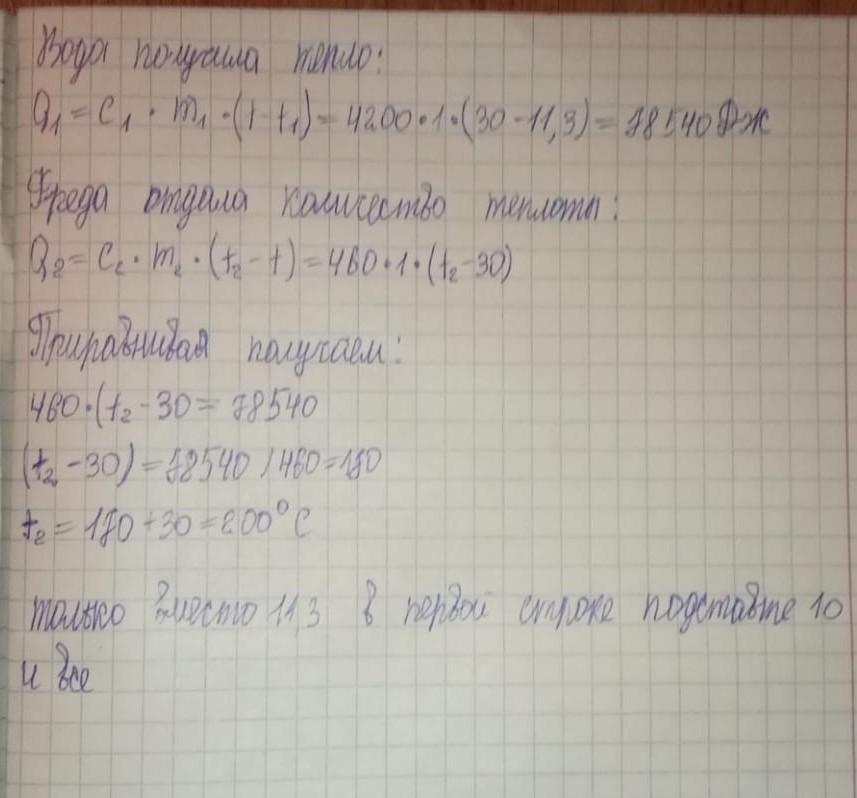 Вода получила тепло:
Q₁ = C₁ · m₁ · (t - t₁) = 4200 · 1 · (30 - 11,3) = 78540 Дж
Фреда отдала количество теплоты:
Q₂ = C₂ · m₂ · (t₂ - t) = 460 · 1 · (t₂ - 30)
Приравнивая получаем:
460 · (t₂ - 30 = 78540
(t₂ - 30) = 78540 / 460 = 170
t₂ = 170 + 30 = 200° C
только вместо 11,3 в первой строке подставте 10
и все